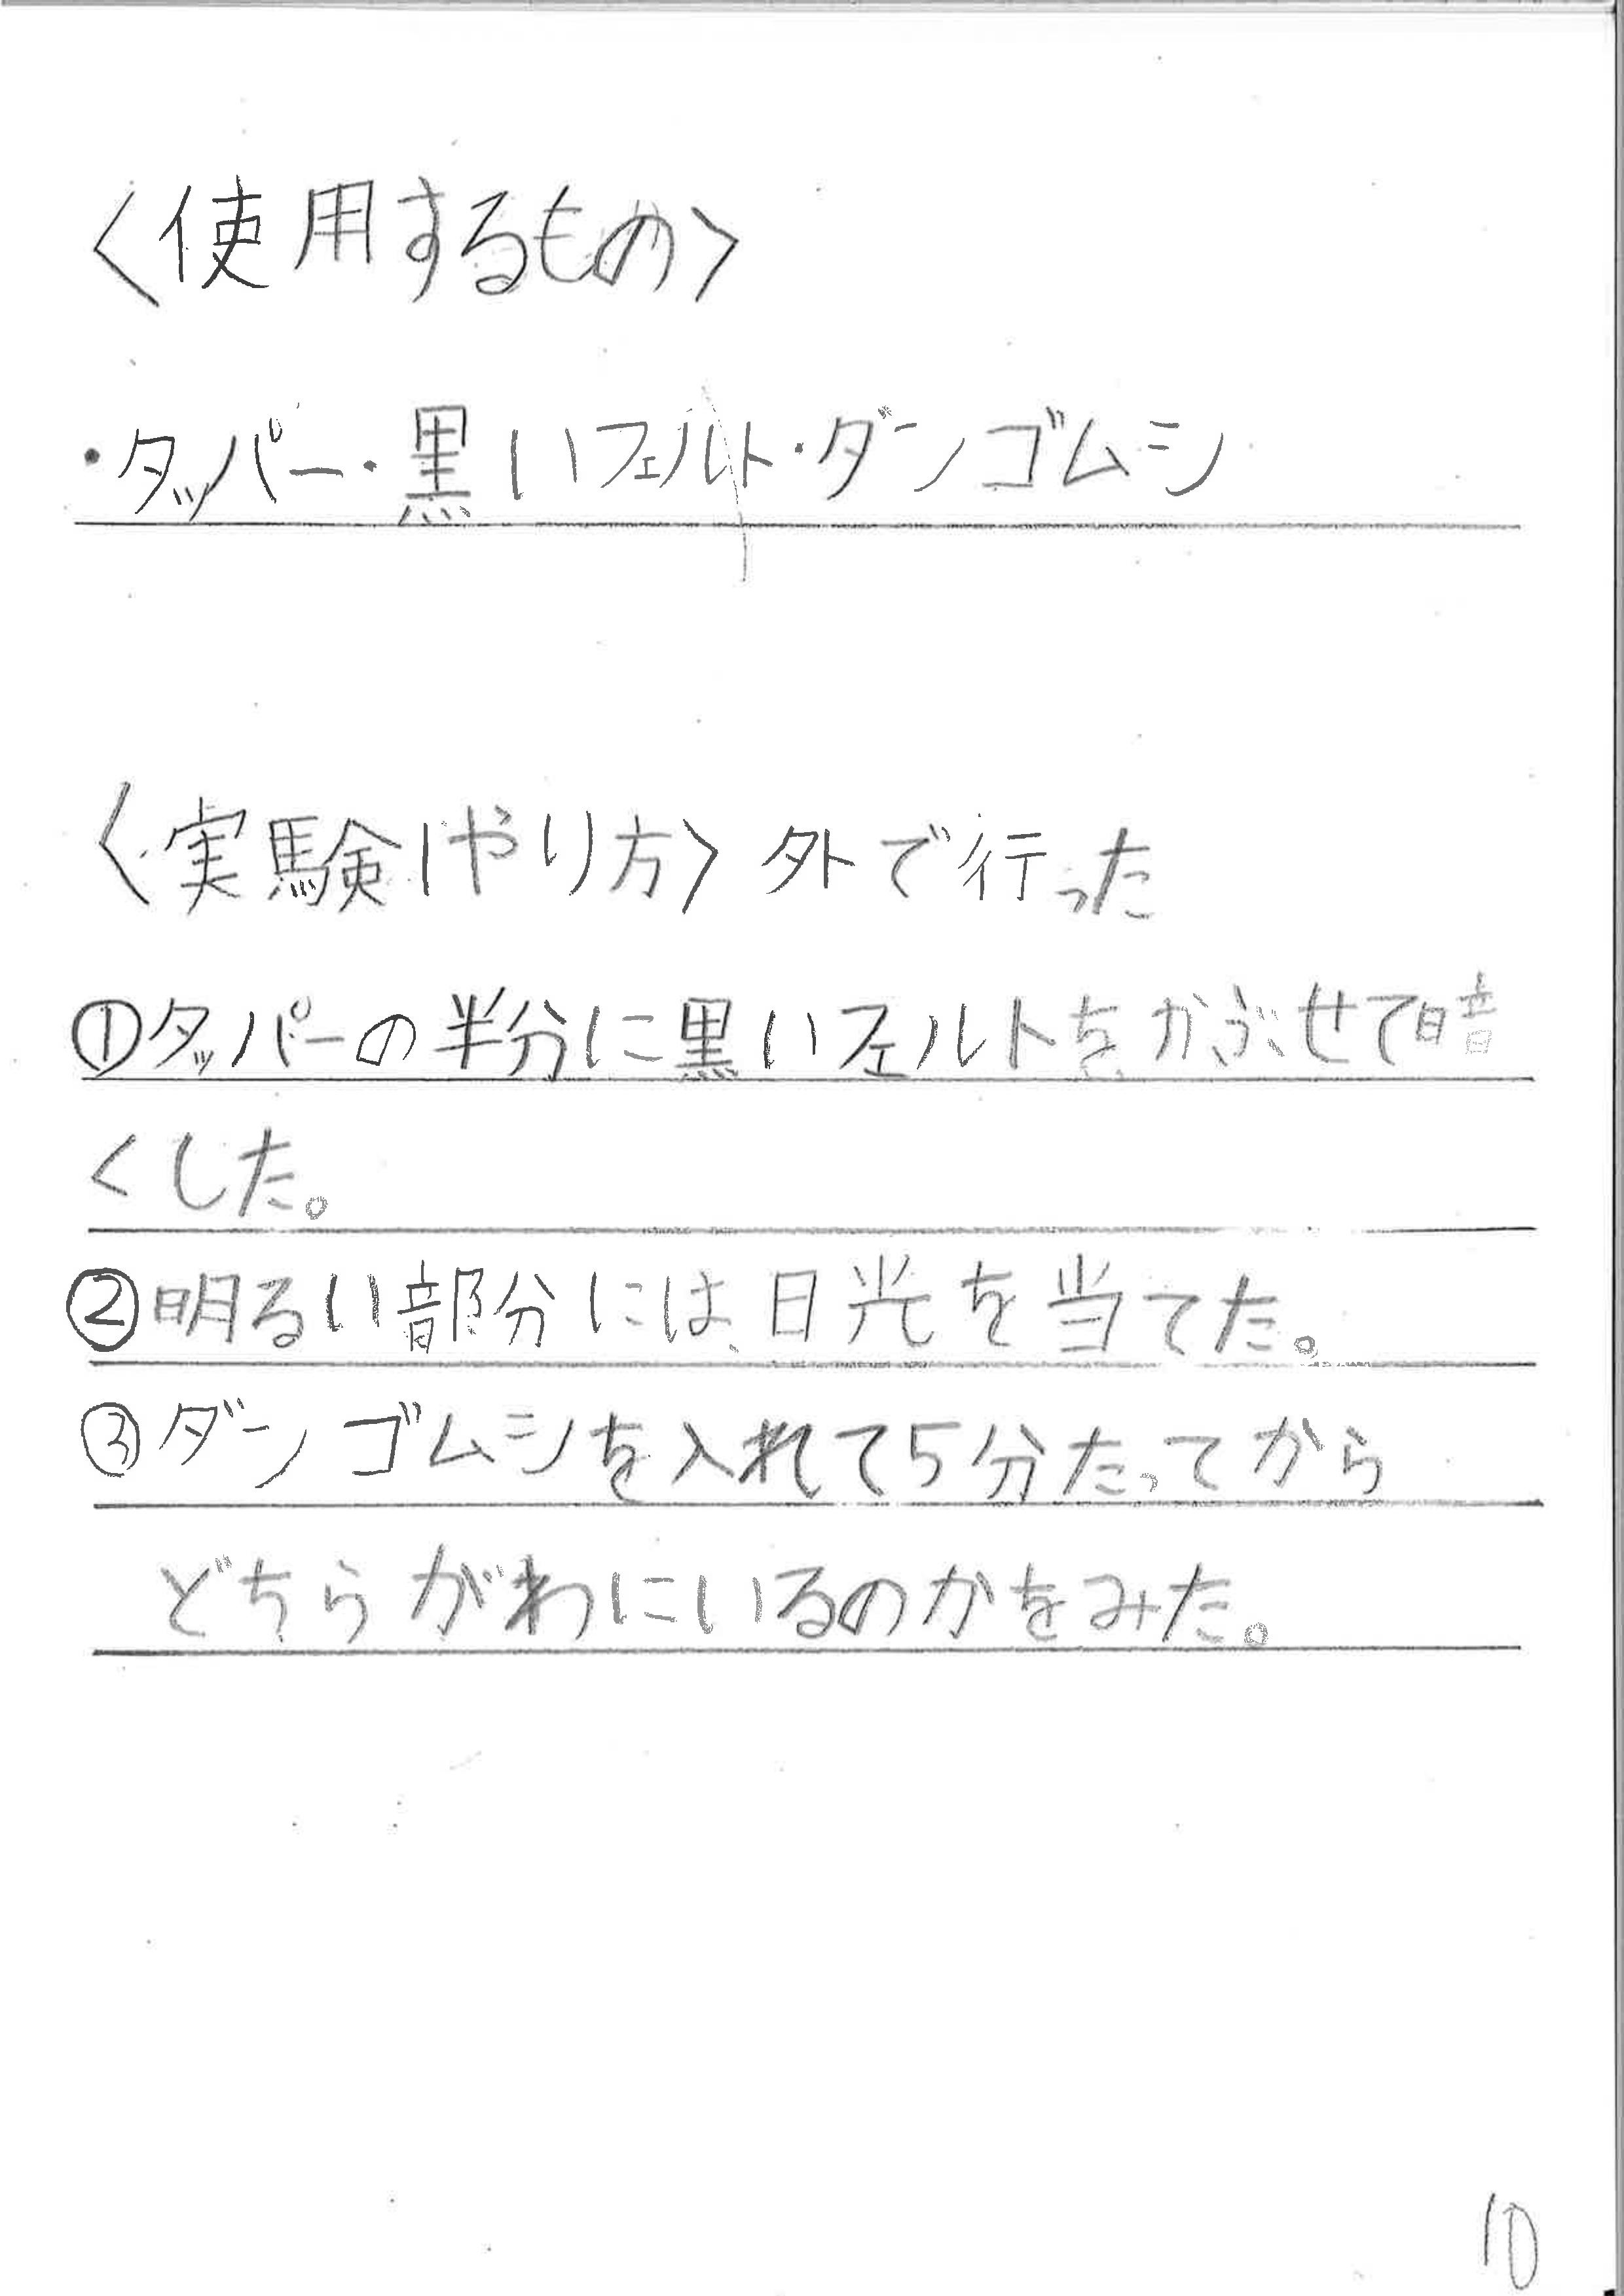 〈使用するもの〉
・タッパー・黒いフェルト・ダンゴムシ
〈実験1やり方〉外で行った
①タッパーの半分に黒いフェルトをかぶせて暗
くした。
②明るい部分には、日光を当てた。
③ダンゴムシを入れて5分たってから
どちらがわにいるのかをみた。
10